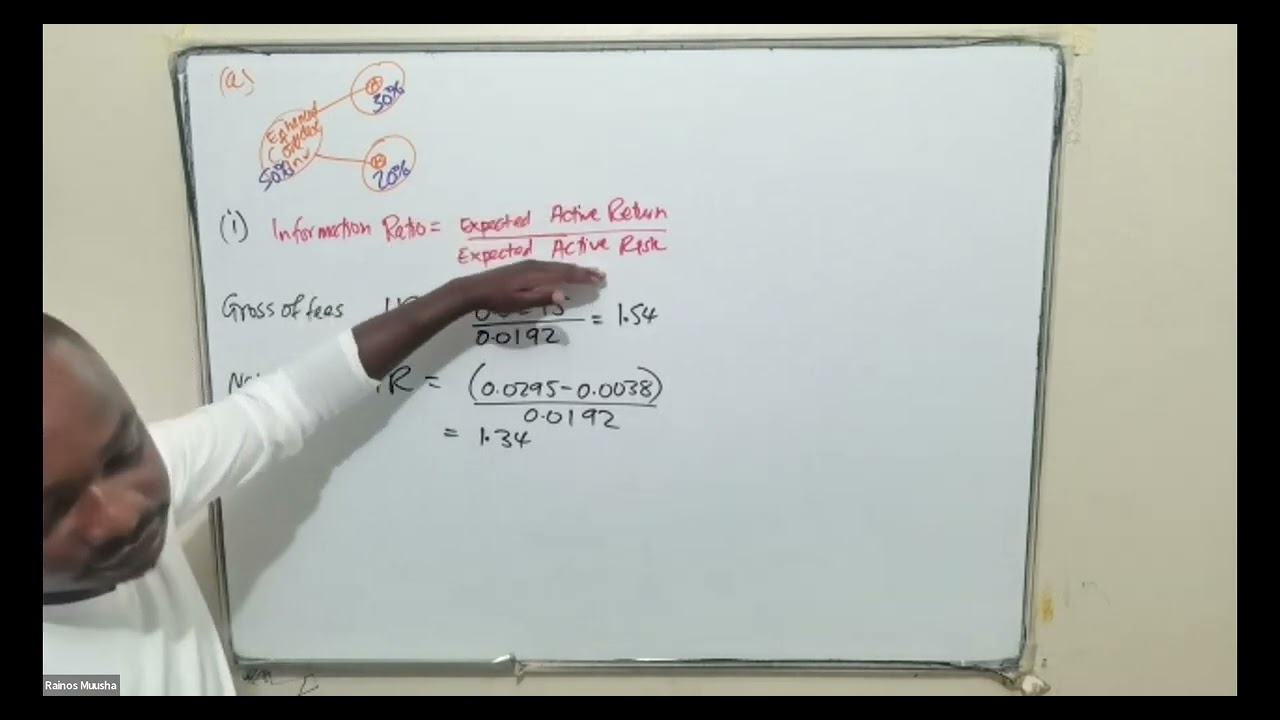 (a)
(A)
30%
Enhanced
Index
50%
(B)
20%
(i) Information Ratio = Expected Active Return
Expected Active Risk
Gross of fees
0.0192
= 1.54
IR = (0.0295-0.0038)
0.0192
= 1.34
Rainos Muusha